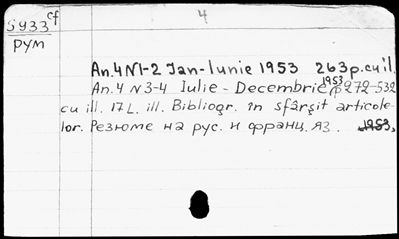 cf 4
S933
рум
An. 4 N1-2 Jan-Iunie 1953 263 p. cu il.
An. 4 N 3-4 Iulie - Decembrie 1953 p 272-532
cu ill. 17 L. ill. Bibliogr. în sfârşit articole-
lor. Резюме на рус. и франц. яз. 1953.